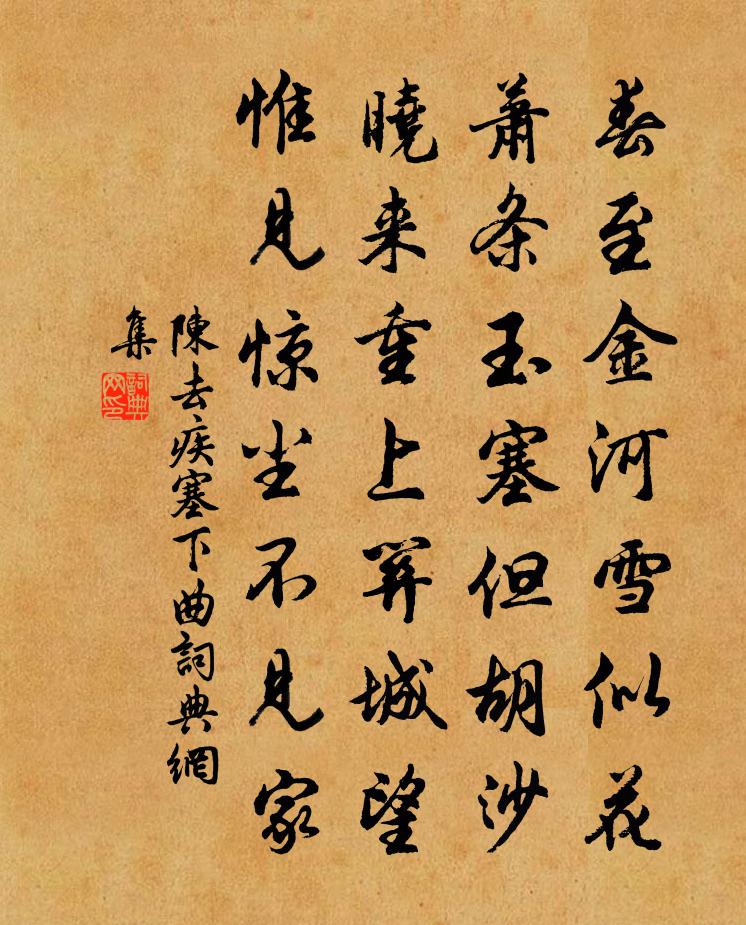 春至金河雪似花
萧条玉塞但胡沙
曉来重上关城望
惟见惊尘不见家
陳去疾塞下曲詞典網
集
詞典
网印